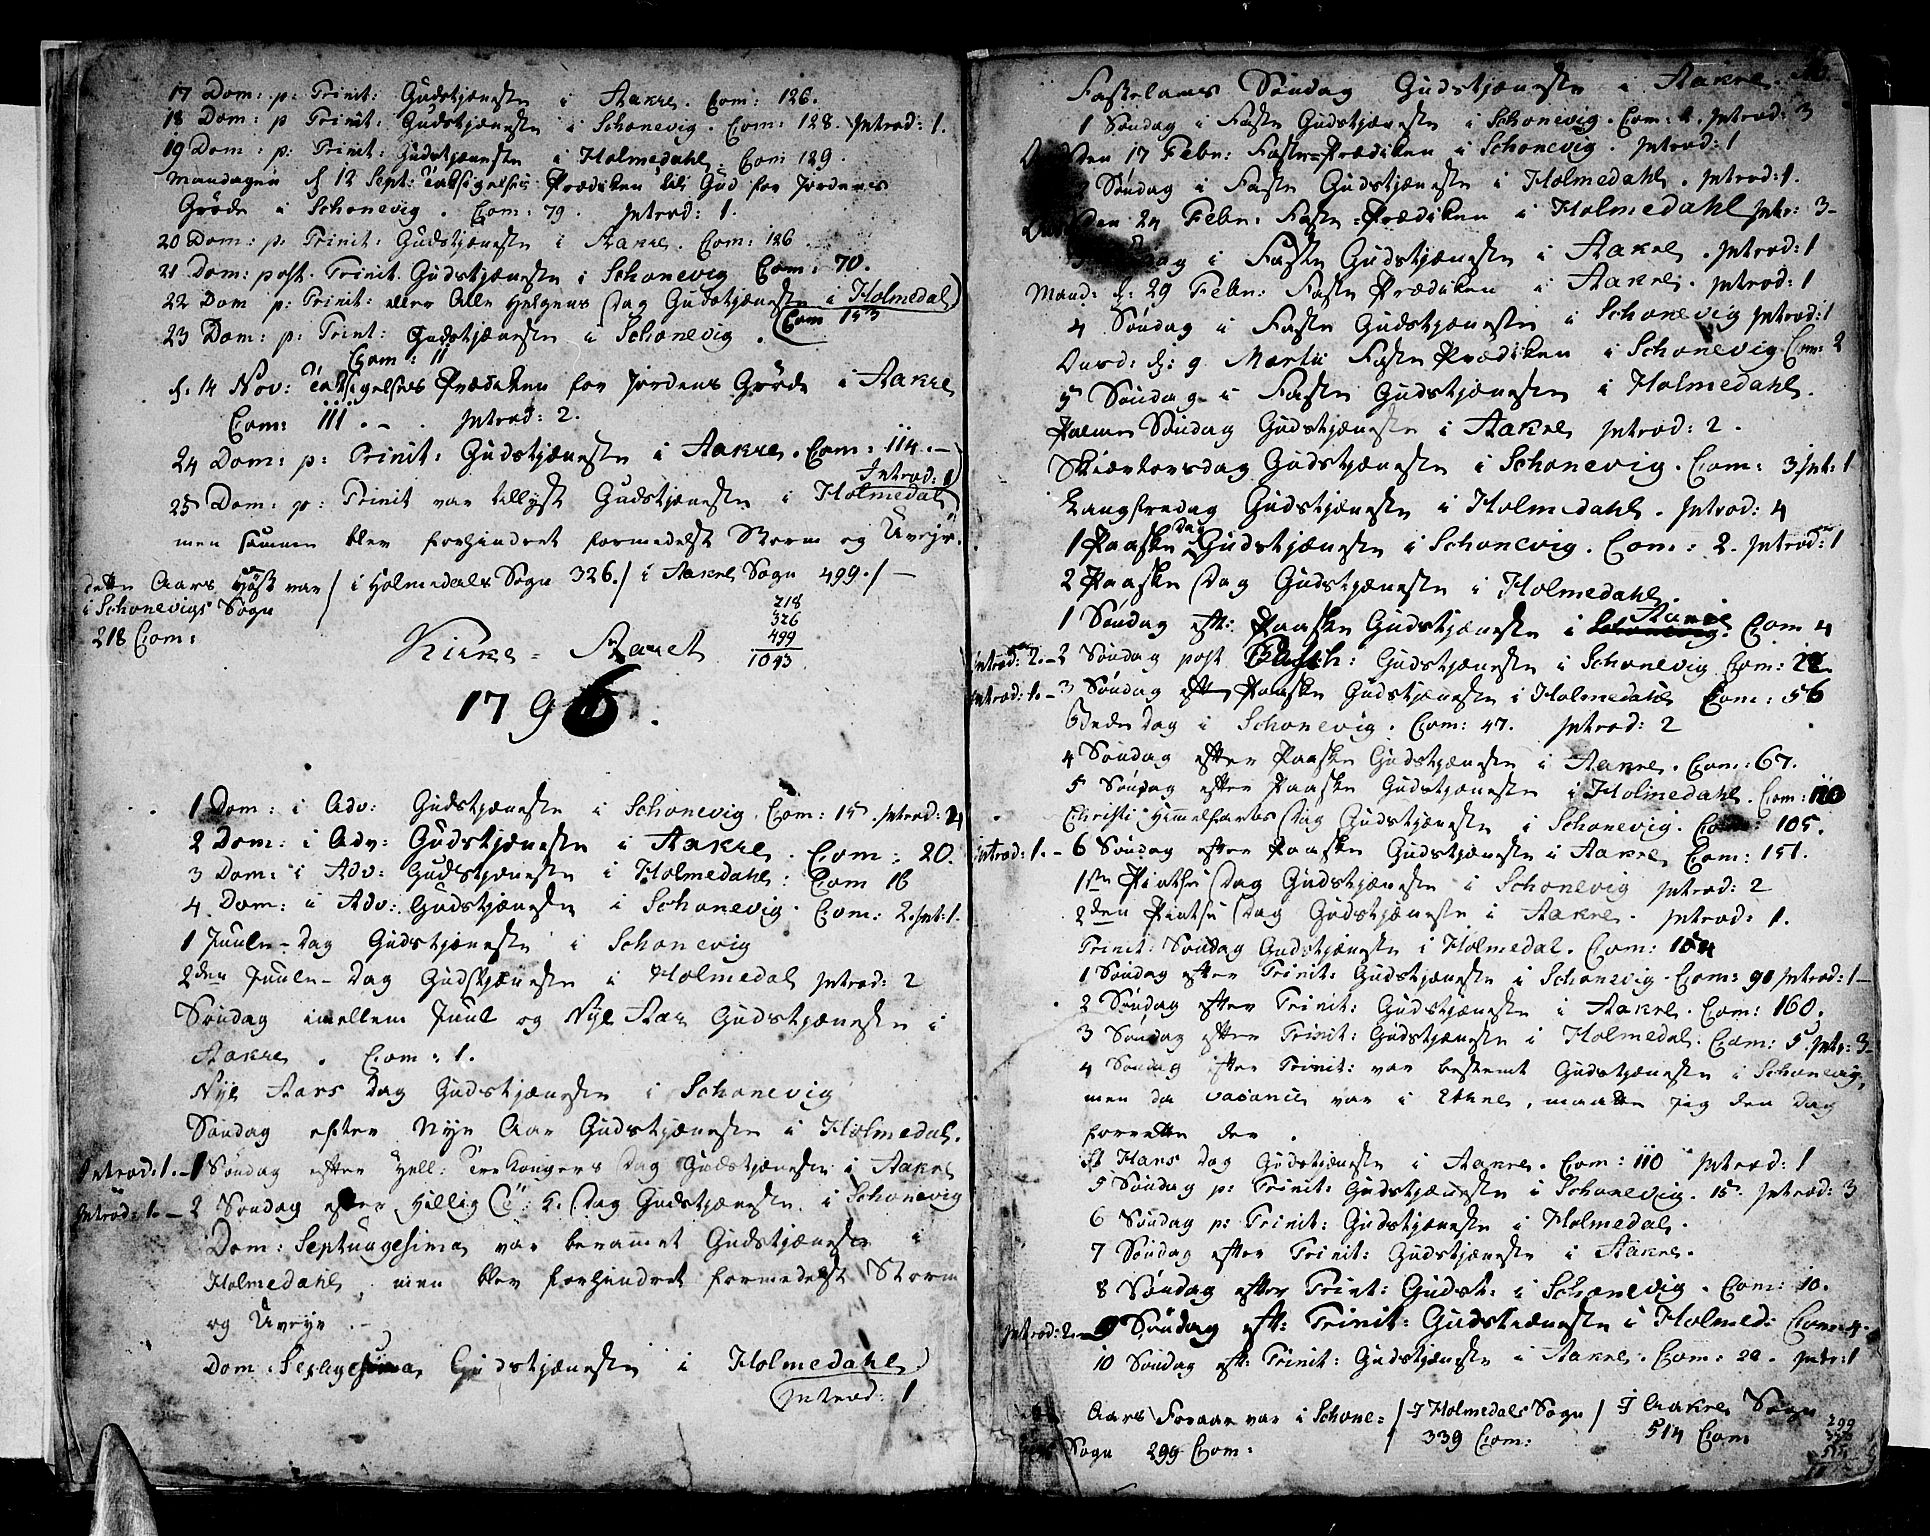 17 Dom: p: Trinit: Gudstjæneste i Aakre. Com: 126.
18 Dom: p Trinit: Gudstjæneste i Schonevig. Com: 128. Introd: 1.
19 Dom: p: Trinit: Gudstjæneste i Holmedahl. Com 129.
Mandagen d 12 Sept: Taksigelses Prædiken til Gud for Jordens
Grøde i Schonevig. Com: 79. Introd: 1.
20 Dom: p: Trinit: Gudstjæneste i Aakre. Com: 126
21 Dom: post. Trinit. Gudstjæneste i Schonevig Com: 70.
22 Dom p: Trinit: eller Alle Helgens Dag Gudstjæneste i Holmedal
Com 153
23 Dom: p: Trinit: Gudstjæneste i Schonevig.
Com: 11
d. 14 Nov: Taksigelses Prædiken for Jordens Grøde i Aakre
Com: 111. - . Introd: 2.
24 Dom: p: Trinit: Gudstjæneste i Aakre. Com: 114. -
Introd: 1
25 Dom: p: Trinit var tillyst Gudstjæneste i Holmedal
men samme blev forhindret formedelst Storm og Uvejr.
dette Aars Høst var / i Holmedals Sogn 326. / i Aakre Sogn 499. / -
i Schonevigs Sogn
218 Com:
218
326
499
1043
Kirke-Aaret
1796.
1 Dom: i Adv: Gudstjæneste i Schonevig. Com: 15. Introd: 2
2 Dom: i Adv: Gudstjæneste i Aakre. Com: 20.
3 Dom: i Adv: Gudstjæneste i Holmedahl: Com 16
4 Dom: i Adv: Gudstjæneste i Schonevig. Com: 2. Int: 1.
1 Juule-Dag Gudstjæneste i Schonevig
2den Juule-Dag Gudstjæneste i Holmedal Introd: 2
Søndag imellem Juul og Nye Aar Gudstjæneste i
Aakre. Com: 1.
Nye Aars Dag Gudstjæneste i Schonevig
Søndag efter Nye Aar Gudstjæneste i Holmedal.
Introd: 1. - 1 Søndag efter Hell: Tre Kongers Dag Gudstjæneste i Aakre
Introd: 1. - 2 Søndag efter Hellig Tr: K. Dag Gudstjæneste i Schonevig
Dom: Septuagesima var berammet Gudstjæneste i
Holmedahl, men blev forhindret formedelst Storm
og Uvejr. -
Dom: Gudstjæneste i Holmedahl
Introd: 1
Fastelavns Søndag Gudstjæneste i Aakre.
1 Søndag i Faste Gudstjæneste i Schonevig. Com: 2. Introd: 3
den 17 Febr: Faste-Prædiken i Schonevig. Introd: 1
2 Søndag i Faste Gudstjæneste i Holmedahl. Introd: 1.
den 24 Febr: Faste-Prædiken i Holmedahl Intr: 3-
i Faste Gudstjæneste i Aakre. Introd: 1
Mand: d: 29 Febr: Faste Prædiken i Aakre. Introd: 1
4 Søndag i Faste Gudstjæneste i Schonevig Introd: 1
Onsd: d: 9 Martii Faste Prædiken i Schonevig Com: 2
5 Søndag i Faste Gudstjæneste i Holmedahl.
Palme Søndag Gudstjæneste i Aakre Introd: 2.
Skiærtorsdag Gudstjæneste i Schonevig. Com: 3 Int: 1
Langfredag Gudstjæneste i Holmedahl. Introd: 4
1 Paaske Dag Gudstjæneste i Schonevig. Com: 2. Introd: 1
2 Paaske Dag Gudstjæneste i Holmedahl
1 Søndag eft: Paaske Gudstjæneste i Schonevig Aakre. Com 4
Introd: 2. - 2 Søndag post Pasch: Gudstjæneste i Schonevig Com: 22
Introd: 1. - 3 Søndag efter Paaske Gudstjæneste i Holmedahl Com: 56
Bededag i Schonevig. Com: 47. Introd: 2
4 Søndag efter Paaske Gudstjæneste i Aakre. Com: 67.
5 Søndag efter Paaske Gudstjæneste i Holmedahl. Com: 110
Christi Himmelfarts Dag Gudstjæneste i Schonevig. Com: 105.
Introd: 1. - 6 Søndag efter Paaske Gudstjæneste i Aakre Com: 151.
1ste Pintse Dag Gudstjæneste i Schonevig Introd: 2
2den Pintse Dag Gudstjæneste i Aakre. Introd: 1.
Trinit: Søndag Gudstjæneste i Holmedal. Com: 154
1 Søndag efter Trinit: Gudstjæneste i Schonevig. Com: 90 Introd: 1-
2 Søndag efter Trinit: Gudstjæneste i Aakre. Com: 160.
3 Søndag efter Trinit: Gudstjæneste i Holmedal. Com: 5. Intr: 3-
4 Søndag efter Trinit: var bestemt Gudstjæneste i Schonevig,
men da vacance var i Etne, maatte jeg den Dag
forrette der.
St Hans Dag Gudstjæneste i Aakre. Com: 110 Introd: 1
5 Søndag p: Trinit: Gudstjæneste i Schonevig. 15. Introd: 3
6 Søndag p: Trinit: Gudstjæneste i Holmedal.
7 Søndag efter Trinit: Gudstjæneste i Aakre.
8 Søndag efter Trinit: Gudst: i Schonevig. Com: 10.
Introd: 2. - 9 Søndag eft: Trinit: Gudstjæneste i Holmed: Com: 4.
10 Søndag eft: Trinit: Gudstjæneste i Aakre. Com: 22. Intr: 1
Aars Foraar var i Schone= / I Holmedals Sogn / I Aakre Sogn
Sogn 299 Com: / 339 Com: 514 Com
299